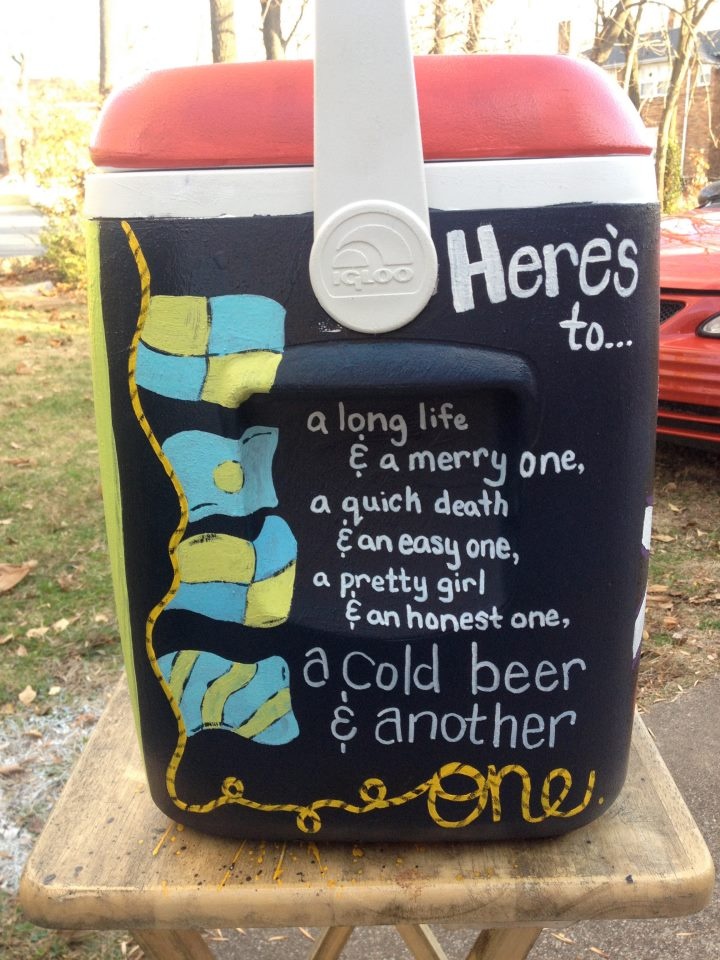 IGLOO
Here's
to...
a long life
& a merry one,
a quick death
& an easy one,
a pretty girl
& an honest one,
a cold beer
& another
one.